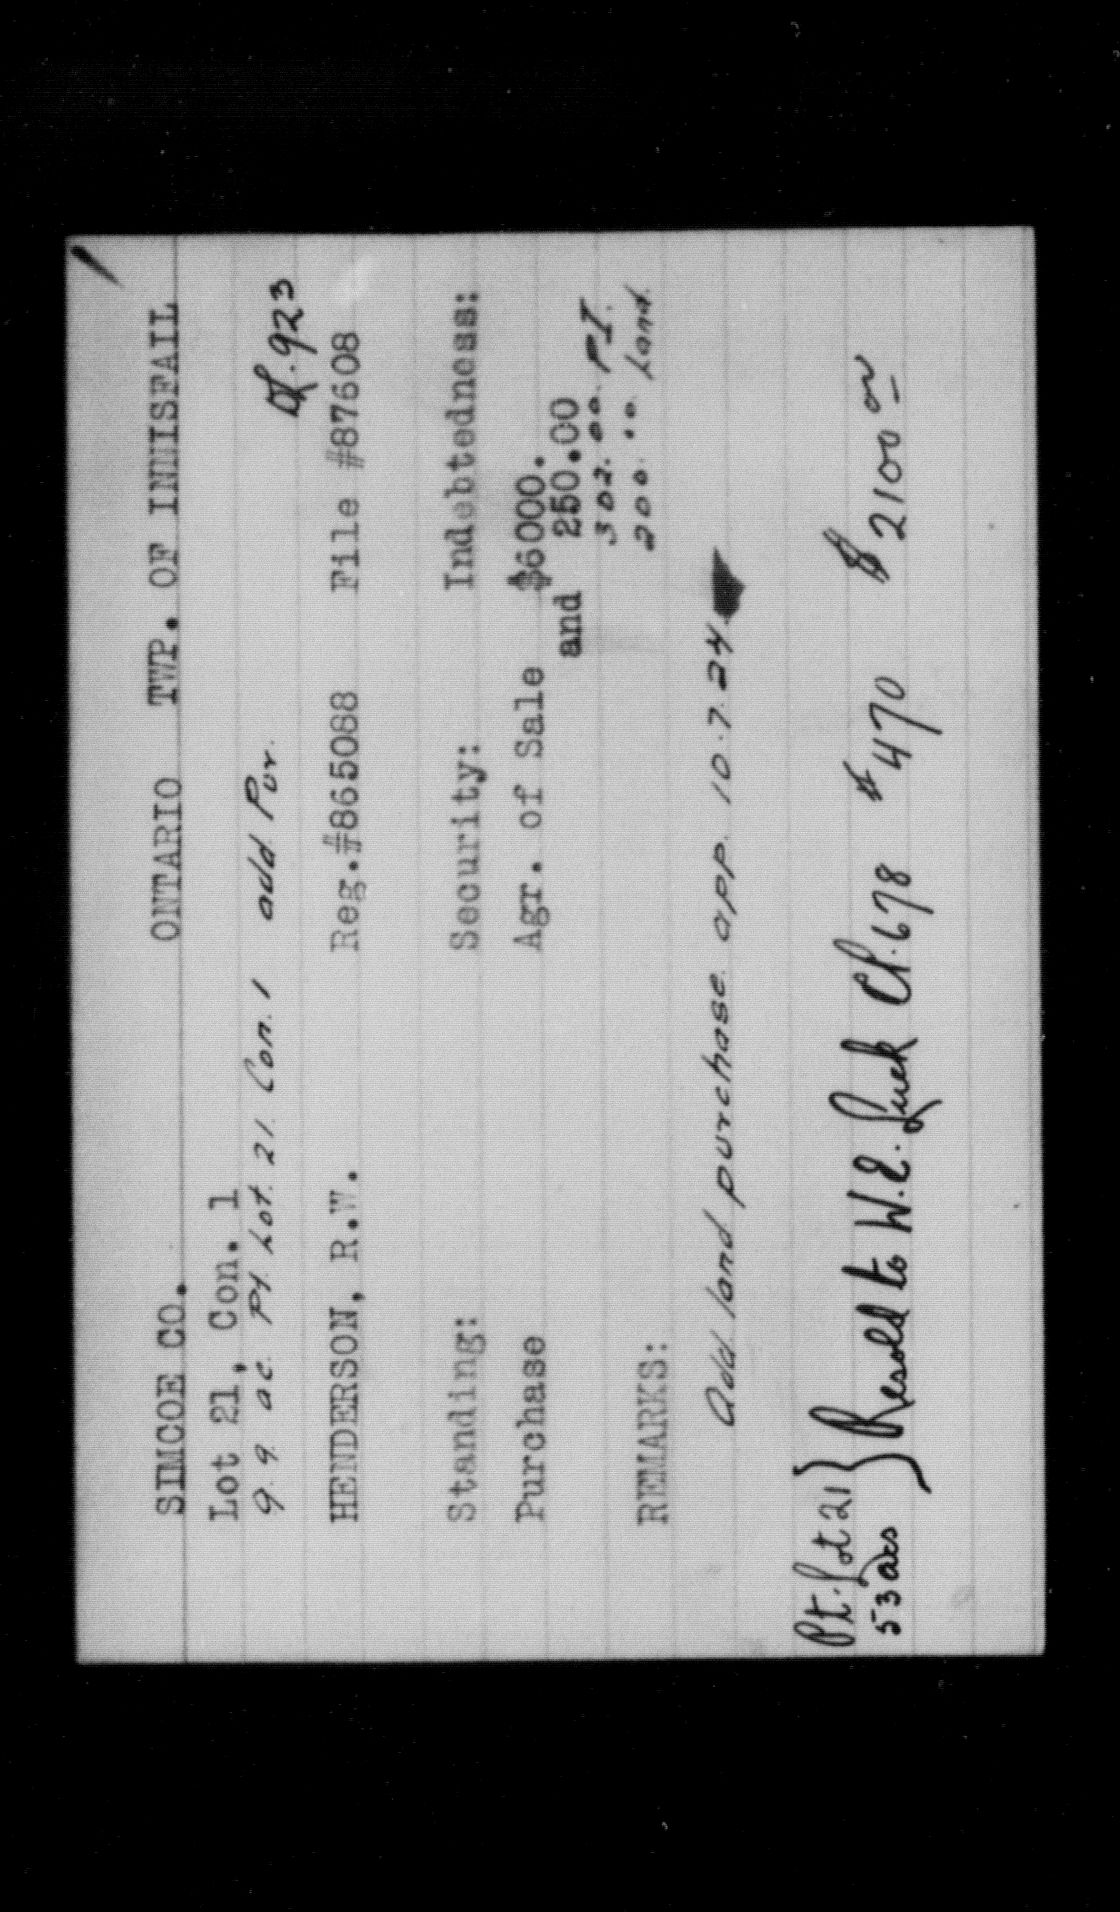 SIMCOE CO. ONTARIO TWP. OF INNISFAIL
Lot 21, Con. 1
9.9 ac. Pt Lot. 21. Con. 1 add Pur. 923
HENDERSON, R.W. Reg.#865088 File #87608
Standing: Security: Indebtedness:
Purchase Agr. of Sale $6000.
and 250.00
302.00. P.I.
200.00 Land.
REMARKS:
Add. land purchase. app. 10.7.24
Pt. Lot 21 } Resold to W.E. Luck Cl. 678 $470 $2100 00
53 acs